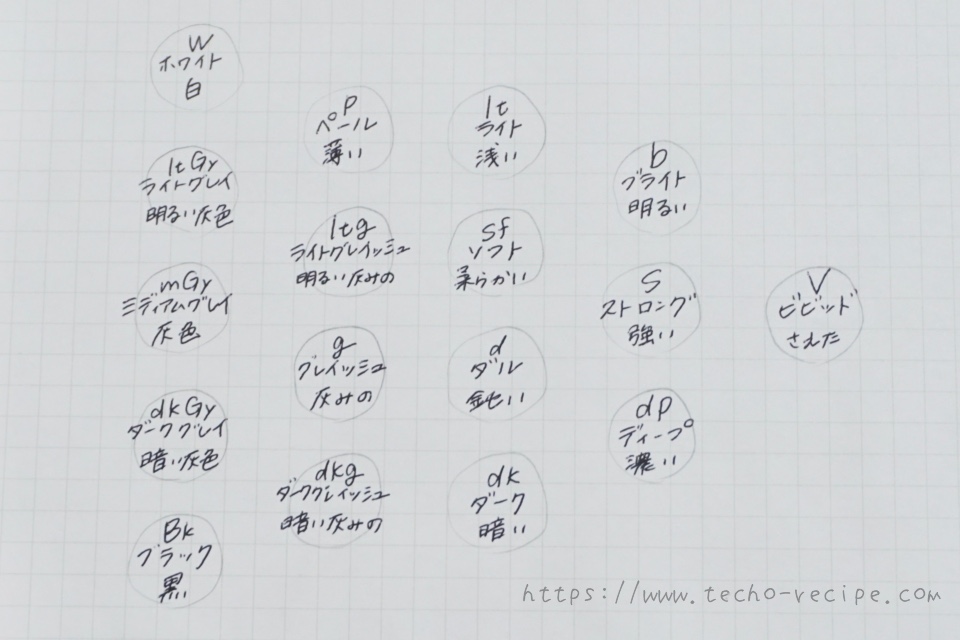 W
ホワイト
白
ltGy
ライトグレイ
明るい灰色
mGy
ミディアムグレイ
灰色
dkGy
ダークグレイ
暗い灰色
Bk
ブラック
黒
P
ペール
薄い
ltg
ライトグレイッシュ
明るい灰みの
g
グレイッシュ
灰みの
dkg
ダークグレイッシュ
暗い灰みの
lt
ライト
浅い
sf
ソフト
柔らかい
d
ダル
鈍い
dk
ダーク
暗い
b
ブライト
明るい
S
ストロング
強い
dp
ディープ
濃い
V
ビビッド
さえた
https://www.techo-recipe.com